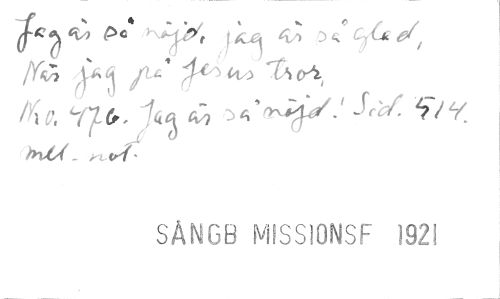 Jag är så nöjd, jag är så glad,
När jag på Jesus tror,
Nro. 476. Jag är så nöjd! Sid. 514.
mel. not.
SÅNGB MISSIONSF 1921